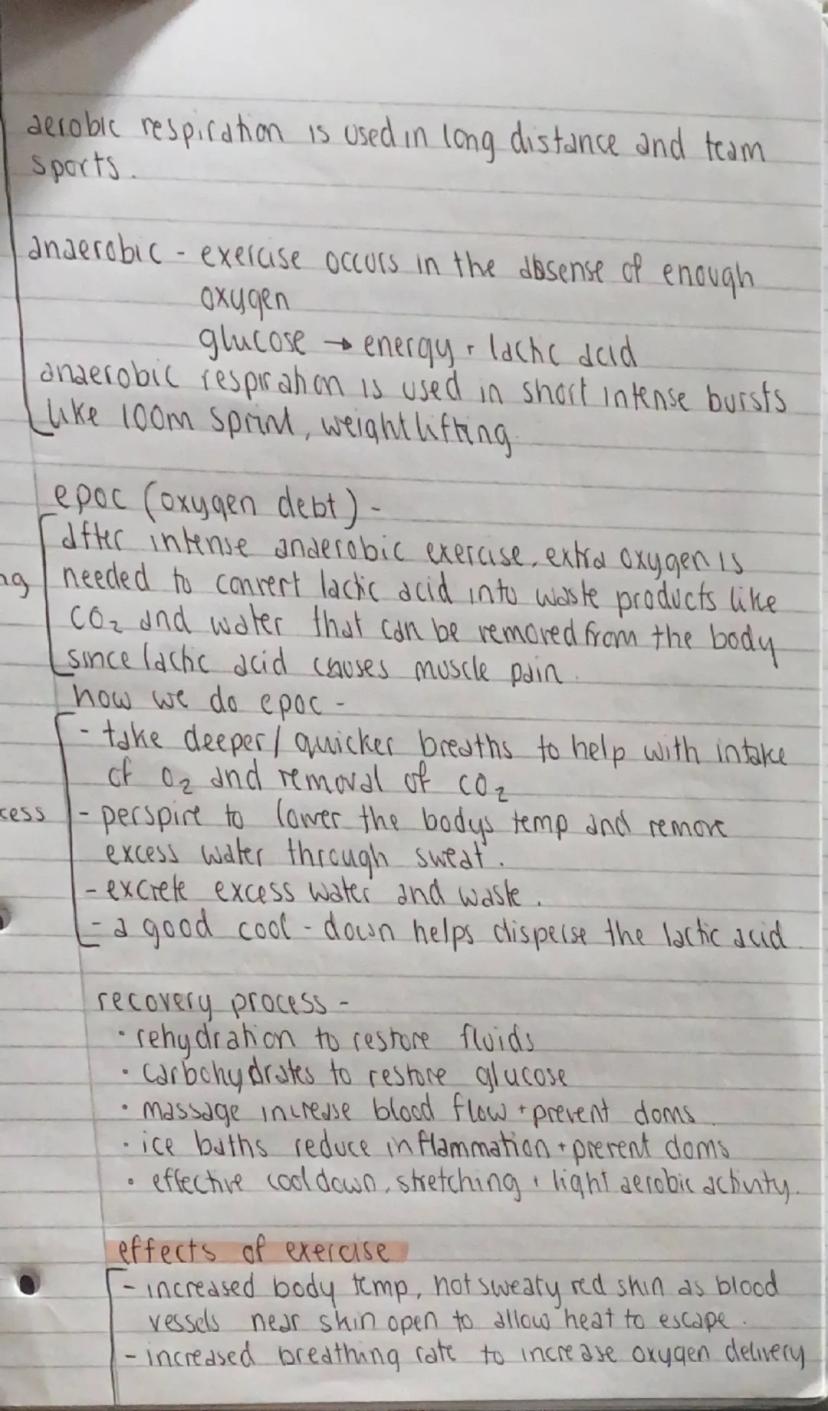 aerobic respiration is used in long distance and team
sports.
anaerobic - exercise occurs in the absense of enough
oxygen
glucose → energy + lactic acid
anaerobic respiration is used in short intense bursts
like 100m sprint, weightlifting
epoc (oxygen debt) -
after intense anaerobic exercise, extra oxygen is
ng needed to convert lactic acid into waste products like
CO₂ and water that can be removed from the body
since lactic acid causes muscle pain.
how we do epoc -
- take deeper / quicker breaths to help with intake
of O₂ and removal of CO₂
cess - perspire to lower the bodys temp and remove
excess water through sweat.
- excrete excess water and waste.
- a good cool-down helps disperse the lactic acid
recovery process -
• rehydration to restore fluids
• carbohydrates to restore glucose
• massage increase blood flow + prevent doms
• ice baths reduce inflammation + prevent doms
• effective cool down, stretching + light aerobic activity.
effects of exercise
- increased body temp, hot sweaty red skin as blood
vessels near skin open to allow heat to escape.
- increased breathing rate to increase oxygen delivery